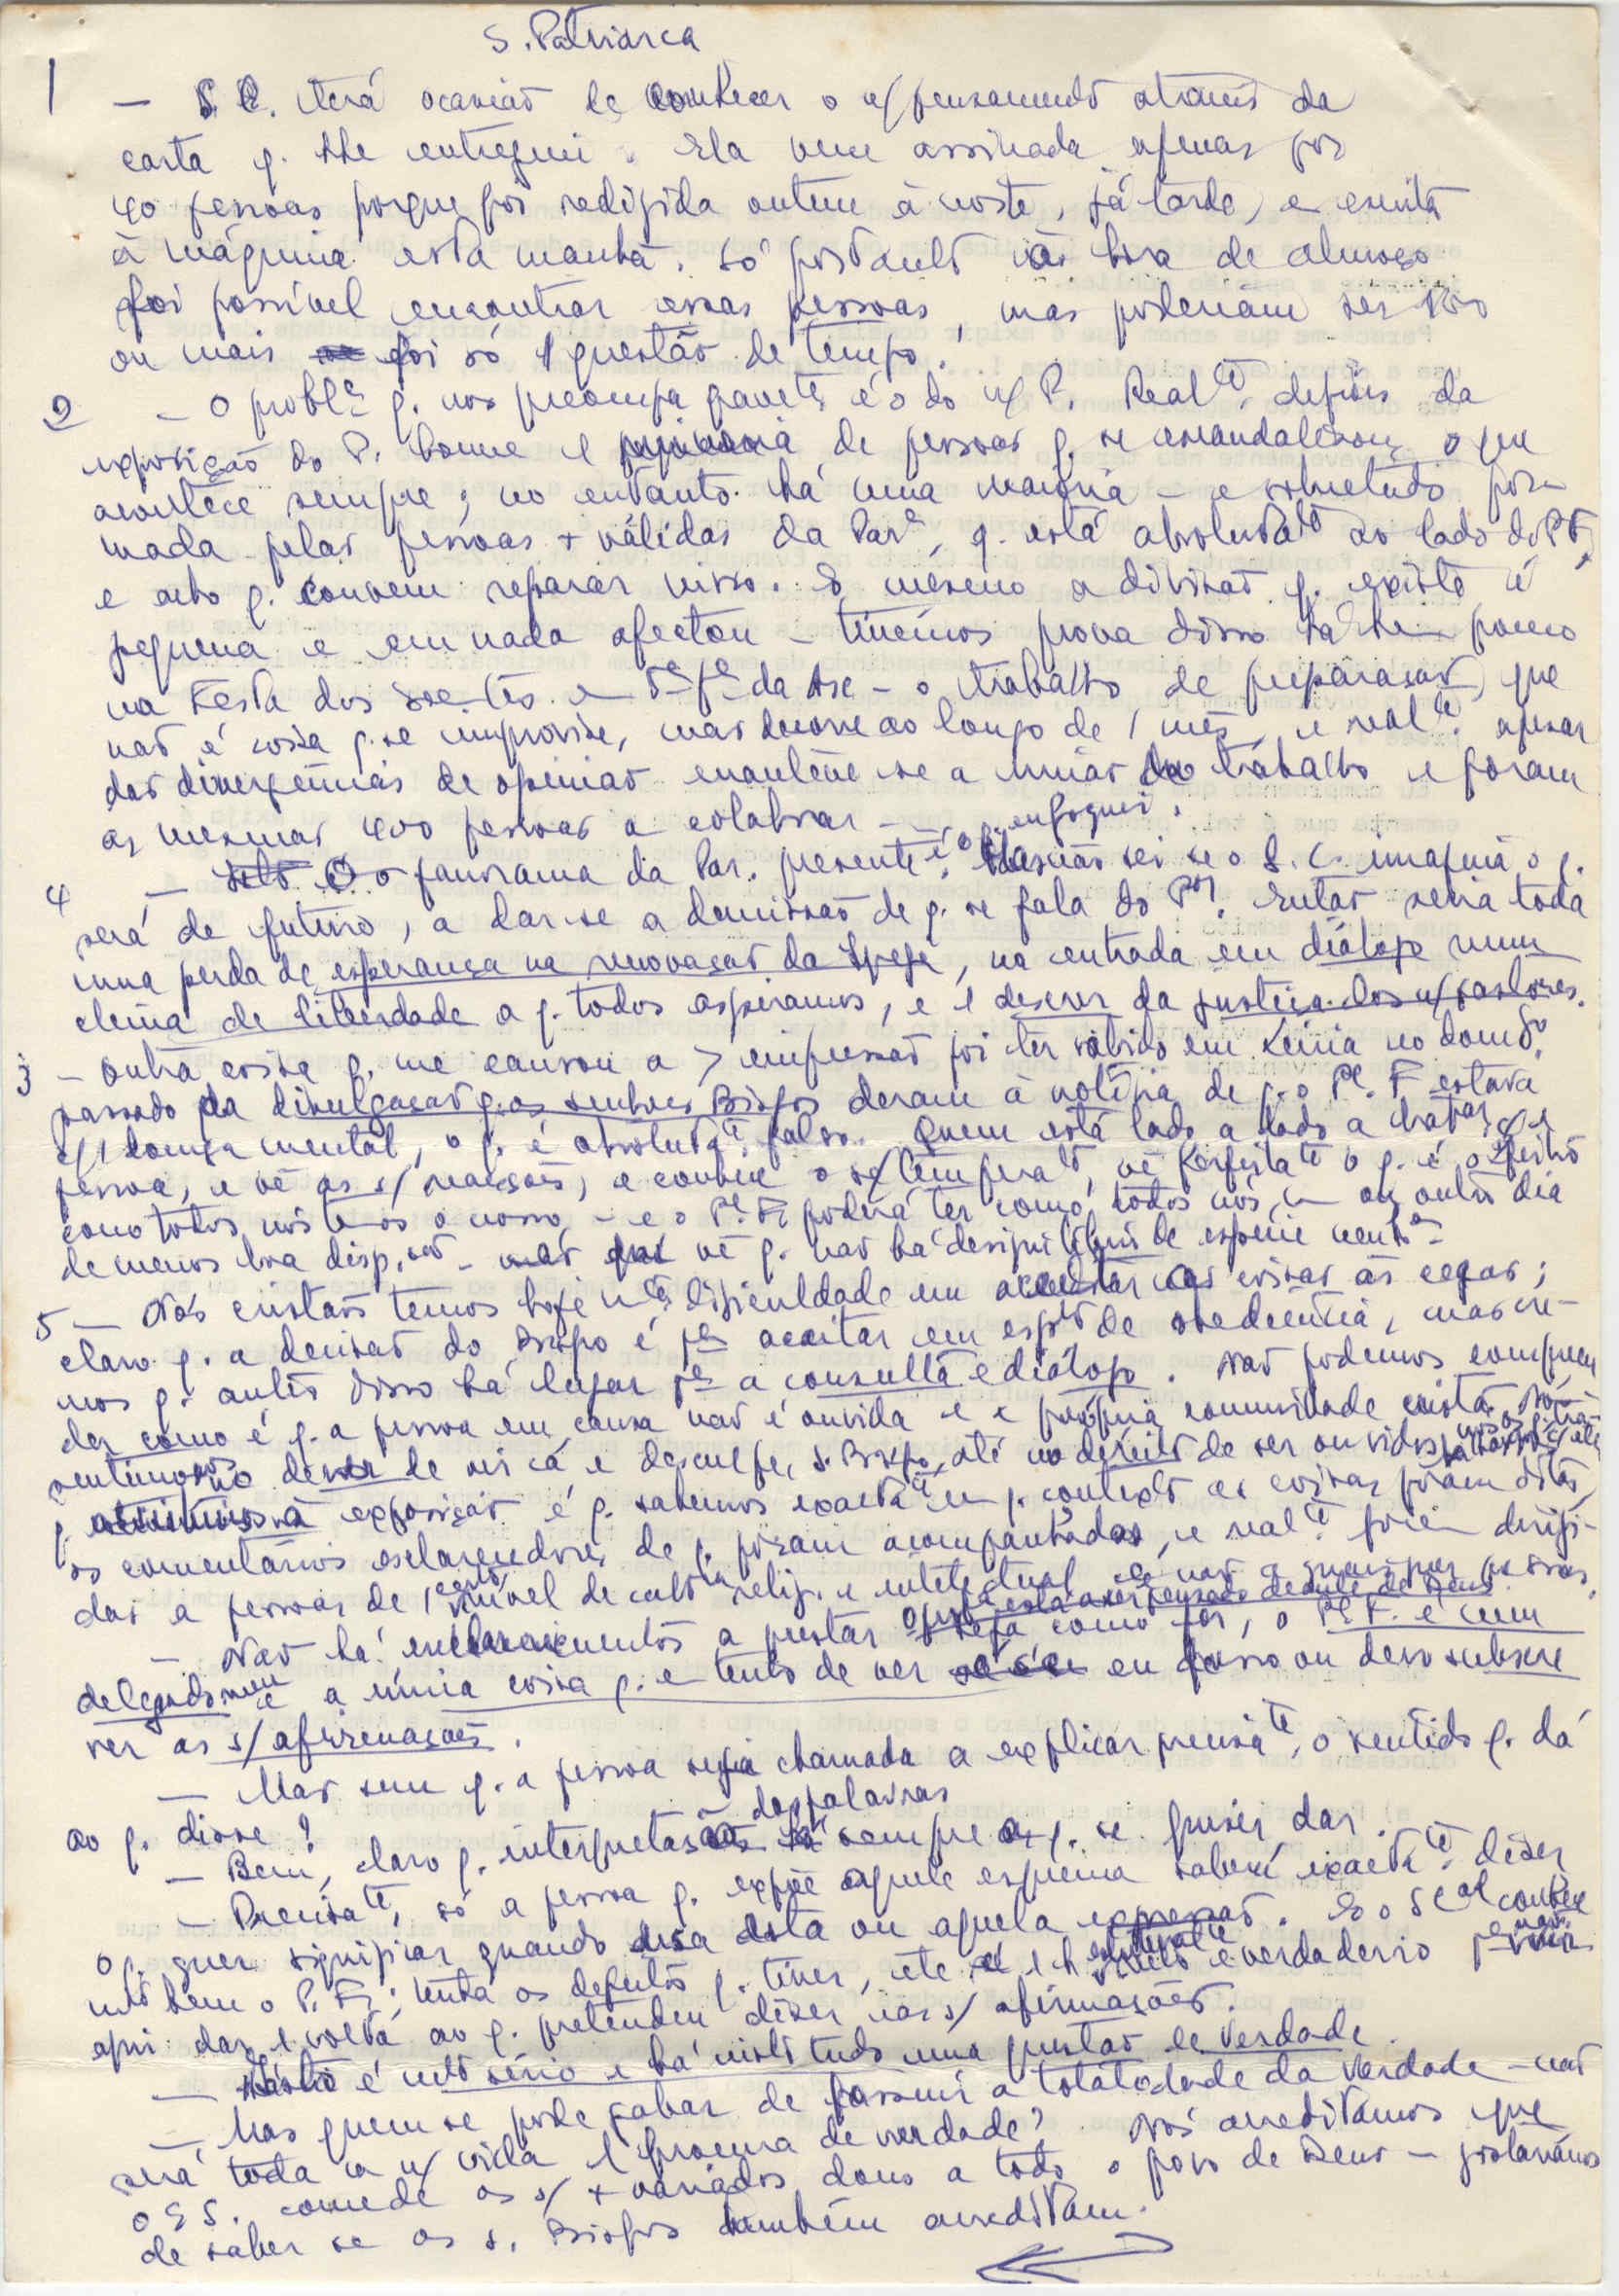 S. Patriarca
1 — S. E. terá ocasião de conhecer o n/ pensamento através da
carta q. lhe entreguei. Ela vem assinada apenas por
40 pessoas porque foi redigida ontem à noite, já tarde, e escrita
à máquina esta manhã. Só portanto à hora de almoço
foi possível encontrar essas pessoas, mas poderiam ser
ou mais foi só 1 questão de tempo.
2 — O probl.ª q. nos preocupa gravete é o do n/ P. Realte, depois da
exposição do P. houve 1 minoria de pessoas q. se escandalizou, o que
acontece sempre; no entanto há uma maioria — e sobretudo for-
mada pelas pessoas + válidas da Par.ª, q. está absolutate ao lado do P. F.,
e acho q. convém reparar nisso. E mesmo a divisão q. existe é
pequena e em nada afectou — tivemos prova disso há pouco
na Festa dos e 5ª fª da Asc — o trabalho de preparação, que
não é coisa q. se improvise, mas decorre ao longo de 1 mês, e realte. apesar
das divergências de opinião manteve-se a união no trabalho e foram
as mesmas 400 pessoas a colaborar —
4 — O panorama da Par. presente é o q. enfoquei. Mas não sei se o S. C. imagina o q.
será de futuro, a dar-se a demissão de q. se fala do Pe. Então seria toda
uma perda de esperança na renovação da Igreja, na entrada em diálogo num
clima de liberdade a q. todos aspiramos, e 1 descrer da justiça dos n/ pastores.
3 — Outra coisa q. me causou a > impressão foi ter sabido em Leiria no domgo.
passado da divulgação q. os senhores Bispos deram à notícia de q. o Pe. F. estava
c/ 1 doença mental, o q. é absolutate falso. Quem está lado a lado a trabar c/ 1
pessoa, e vê as s/ reacções, e conhece o s/ temperato, vê perfeitate o q. é o feitio
como todos nós temos o nosso — e o Pe. F. poderá ter como todos nós, um ou outro dia
de menos boa disp.ção — mas vê q. não há desiquilíbrio de espécie nenhª
5 — Nós cristãos temos hoje mta dificuldade em aceitar as coisas às cegas;
claro q. a decisão do Bispo é pª aceitar em espto de obediência, mas cre-
mos q. antes disso há lugar pª a consulta e diálogo. Não podemos compreen
der como é q. a pessoa em causa não é ouvida e a própria comunidade cristã. Nós
sentimos o dever de vir cá e desculpe, S. Bispo, até no direito de ser ouvidos,
q. assistimos à exposição é q. sabemos exactate em q. contexto as coisas foram ditas,
os comentários esclarecedores de q. foram acompanhadas, e realte foram dirigi-
das a pessoas de 1 certo nível de cultª relig. e intelectual e não a quaisquer pessoas.
— Não há esclarecimentos a prestar o q. está a ser pensado diante de Deus. Seja como for, o Pe. F. é um
delegado meu e a única coisa q. tenho de ver é se eu posso ou devo subscre
ver as s/ afirmações.
— Mas sem q. a pessoa seja chamada a explicar precisate o sentido q. dá
ao q. disse?
— Bem, claro q. interpretação das palavras há sempre a q. se quiser dar.
— Precisate, só a pessoa q. expõe aquele esquema saberá exactate dizer
o q. quer significar quando usa esta ou aquela expressão. E o S. Cal conhece
mto bem o P. F.; tenha os defeitos q. tiver, ele é 1 h. verdadeiro
aqui dar 1 volta ao q. pretendeu dizer nas s/ afirmações.
— Isto é mto sério e há nisto tudo uma questão de verdade.
— Mas quem se pode gabar de possuir a totalidade da verdade — não
será toda a n/ vida 1 procura de verdade? Nós acreditamos que
o E. S. concede os s/ + variados dons a todo o povo de Deus — gostaríamos
de saber se os S. Bispos também acreditam.